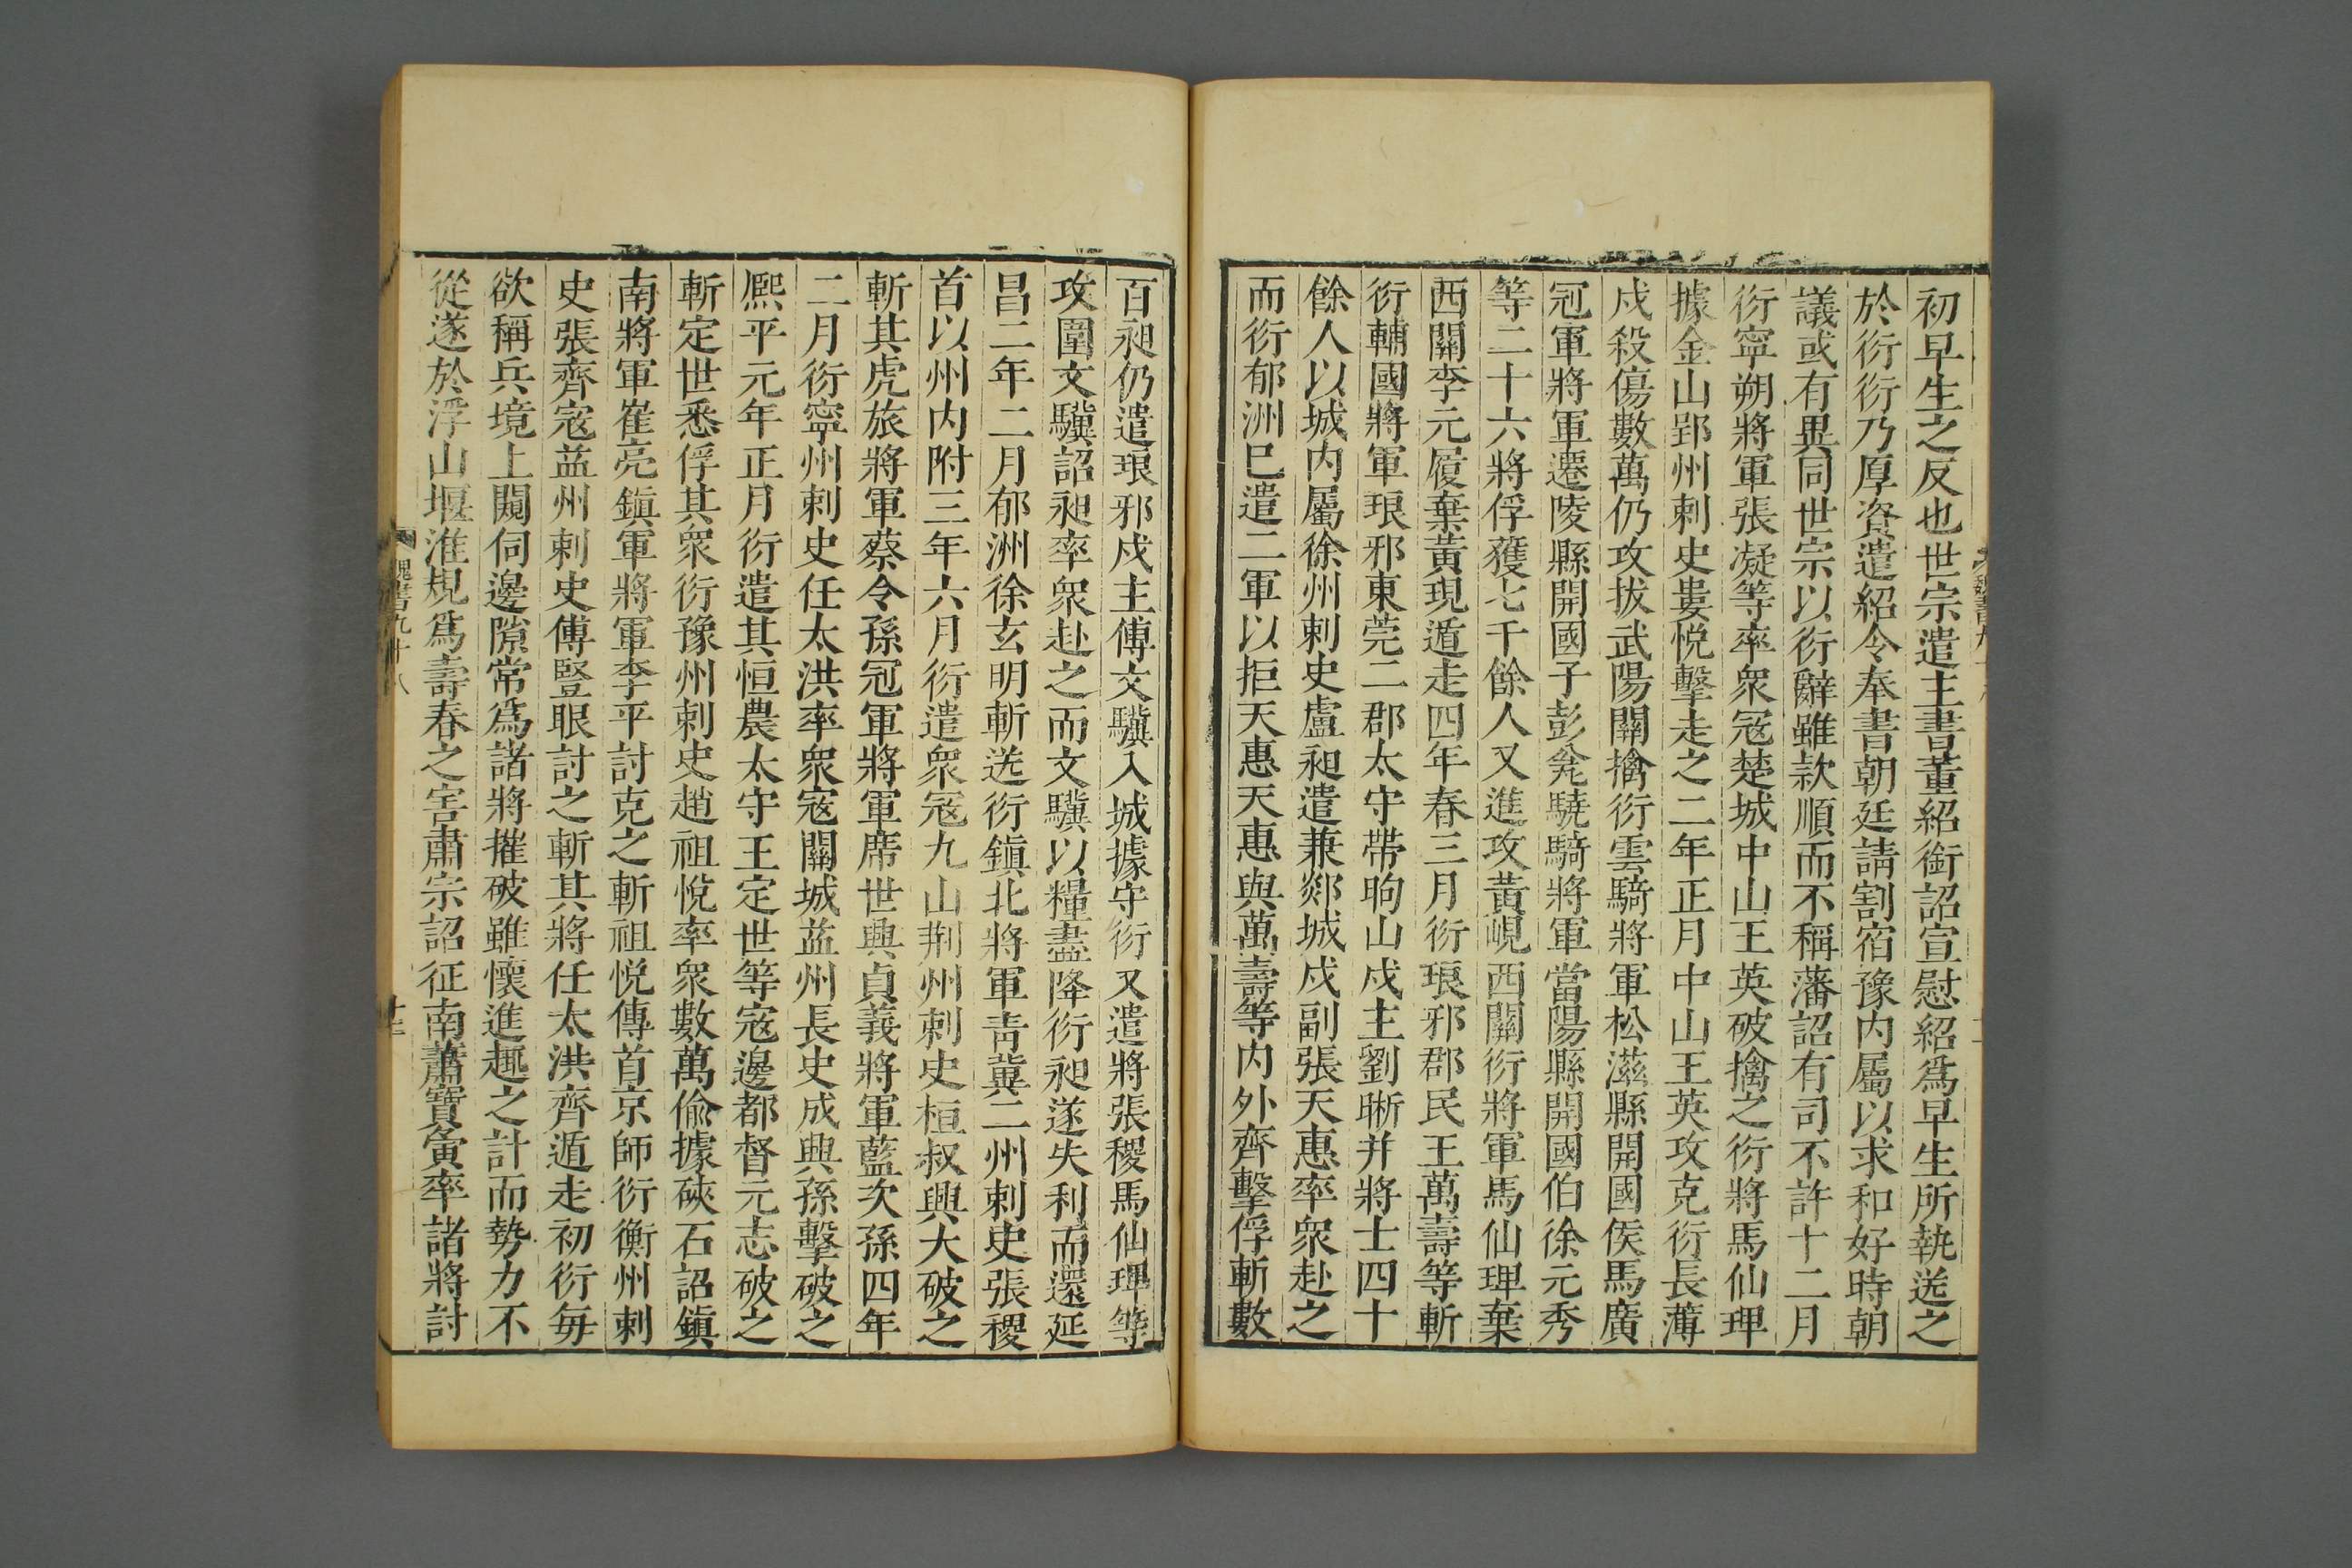 初早生之反也世宗遣主書董紹銜詔宣慰紹爲早生所執送之
於衍衍乃厚資遣紹令奉書朝廷請割宿豫內屬以求和好時朝
議或有異同世宗以衍辭雖款順而不稱藩詔有司不許十二月
衍寧朔將軍張凝等率衆冦楚城中山王英破擒之衍將馬仙琕
據金山郢州刺史婁悅擊走之二年正月中山王英攻克衍長薄
戍殺傷數萬仍攻拔武陽關擒衍雲騎將軍松滋縣開國侯馬廣
冠軍將軍遷陵縣開國子彭瓫驍騎將軍當陽縣開國伯徐元秀
等二十六將俘獲七千餘人又進攻黃峴西關衍將軍馬仙琕棄
西關李元履棄黃現遁走四年春三月衍琅邪郡民王萬壽等斬
衍輔國將軍琅邪東莞二郡太守帶昫山戍主劉晣并將士四十
餘人以城內屬徐州刺史盧昶遣兼郯城戍副張天惠率衆赴之
而衍郁洲已遣二軍以拒天惠天惠與萬壽等內外齊擊俘斬數
百昶仍遣琅邪戍主傅文驥入城據守衍又遣將張稷馬仙琕等
攻圍文驥詔昶率衆赴之而文驥以糧盡降衍昶遂失利而還延
昌二年二月郁洲徐玄明斬送衍鎮北將軍靑冀二州刺史張稷
首以州內附三年六月衍遣衆冦九山荆州刺史桓叔興大破之
斬其虎旅將軍蔡令孫冠軍將軍席世興貞義將軍藍次孫四年
二月衍寧州刺史任太洪率衆冦關城益州長史成興孫擊破之
熈平元年正月衍遣其恒農太守王定世等冦邊都督元志破之
斬定世悉俘其衆衍豫州刺史趙祖悅率衆數萬偷據硤石詔鎮
南將軍崔亮鎮軍將軍李平討克之斬祖悅傳首京師衍衡州刺
史張齊寇益州刺史傅豎眼討之斬其將任太洪齊遁走初衍每
欲稱兵境上闚伺邊隙常爲諸將摧破雖懷進趣之計而勢力不
從遂於浮山堰淮規爲壽春之害肅宗詔征南蕭寶夤率諸將討
魏書九十八
十二